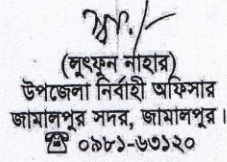 (লুৎফুন নাহার)
উপজেলা নির্বাহী অফিসার
জামালপুর সদর, জামালপুর।
☎ ০৯৮১-৬৩১২০